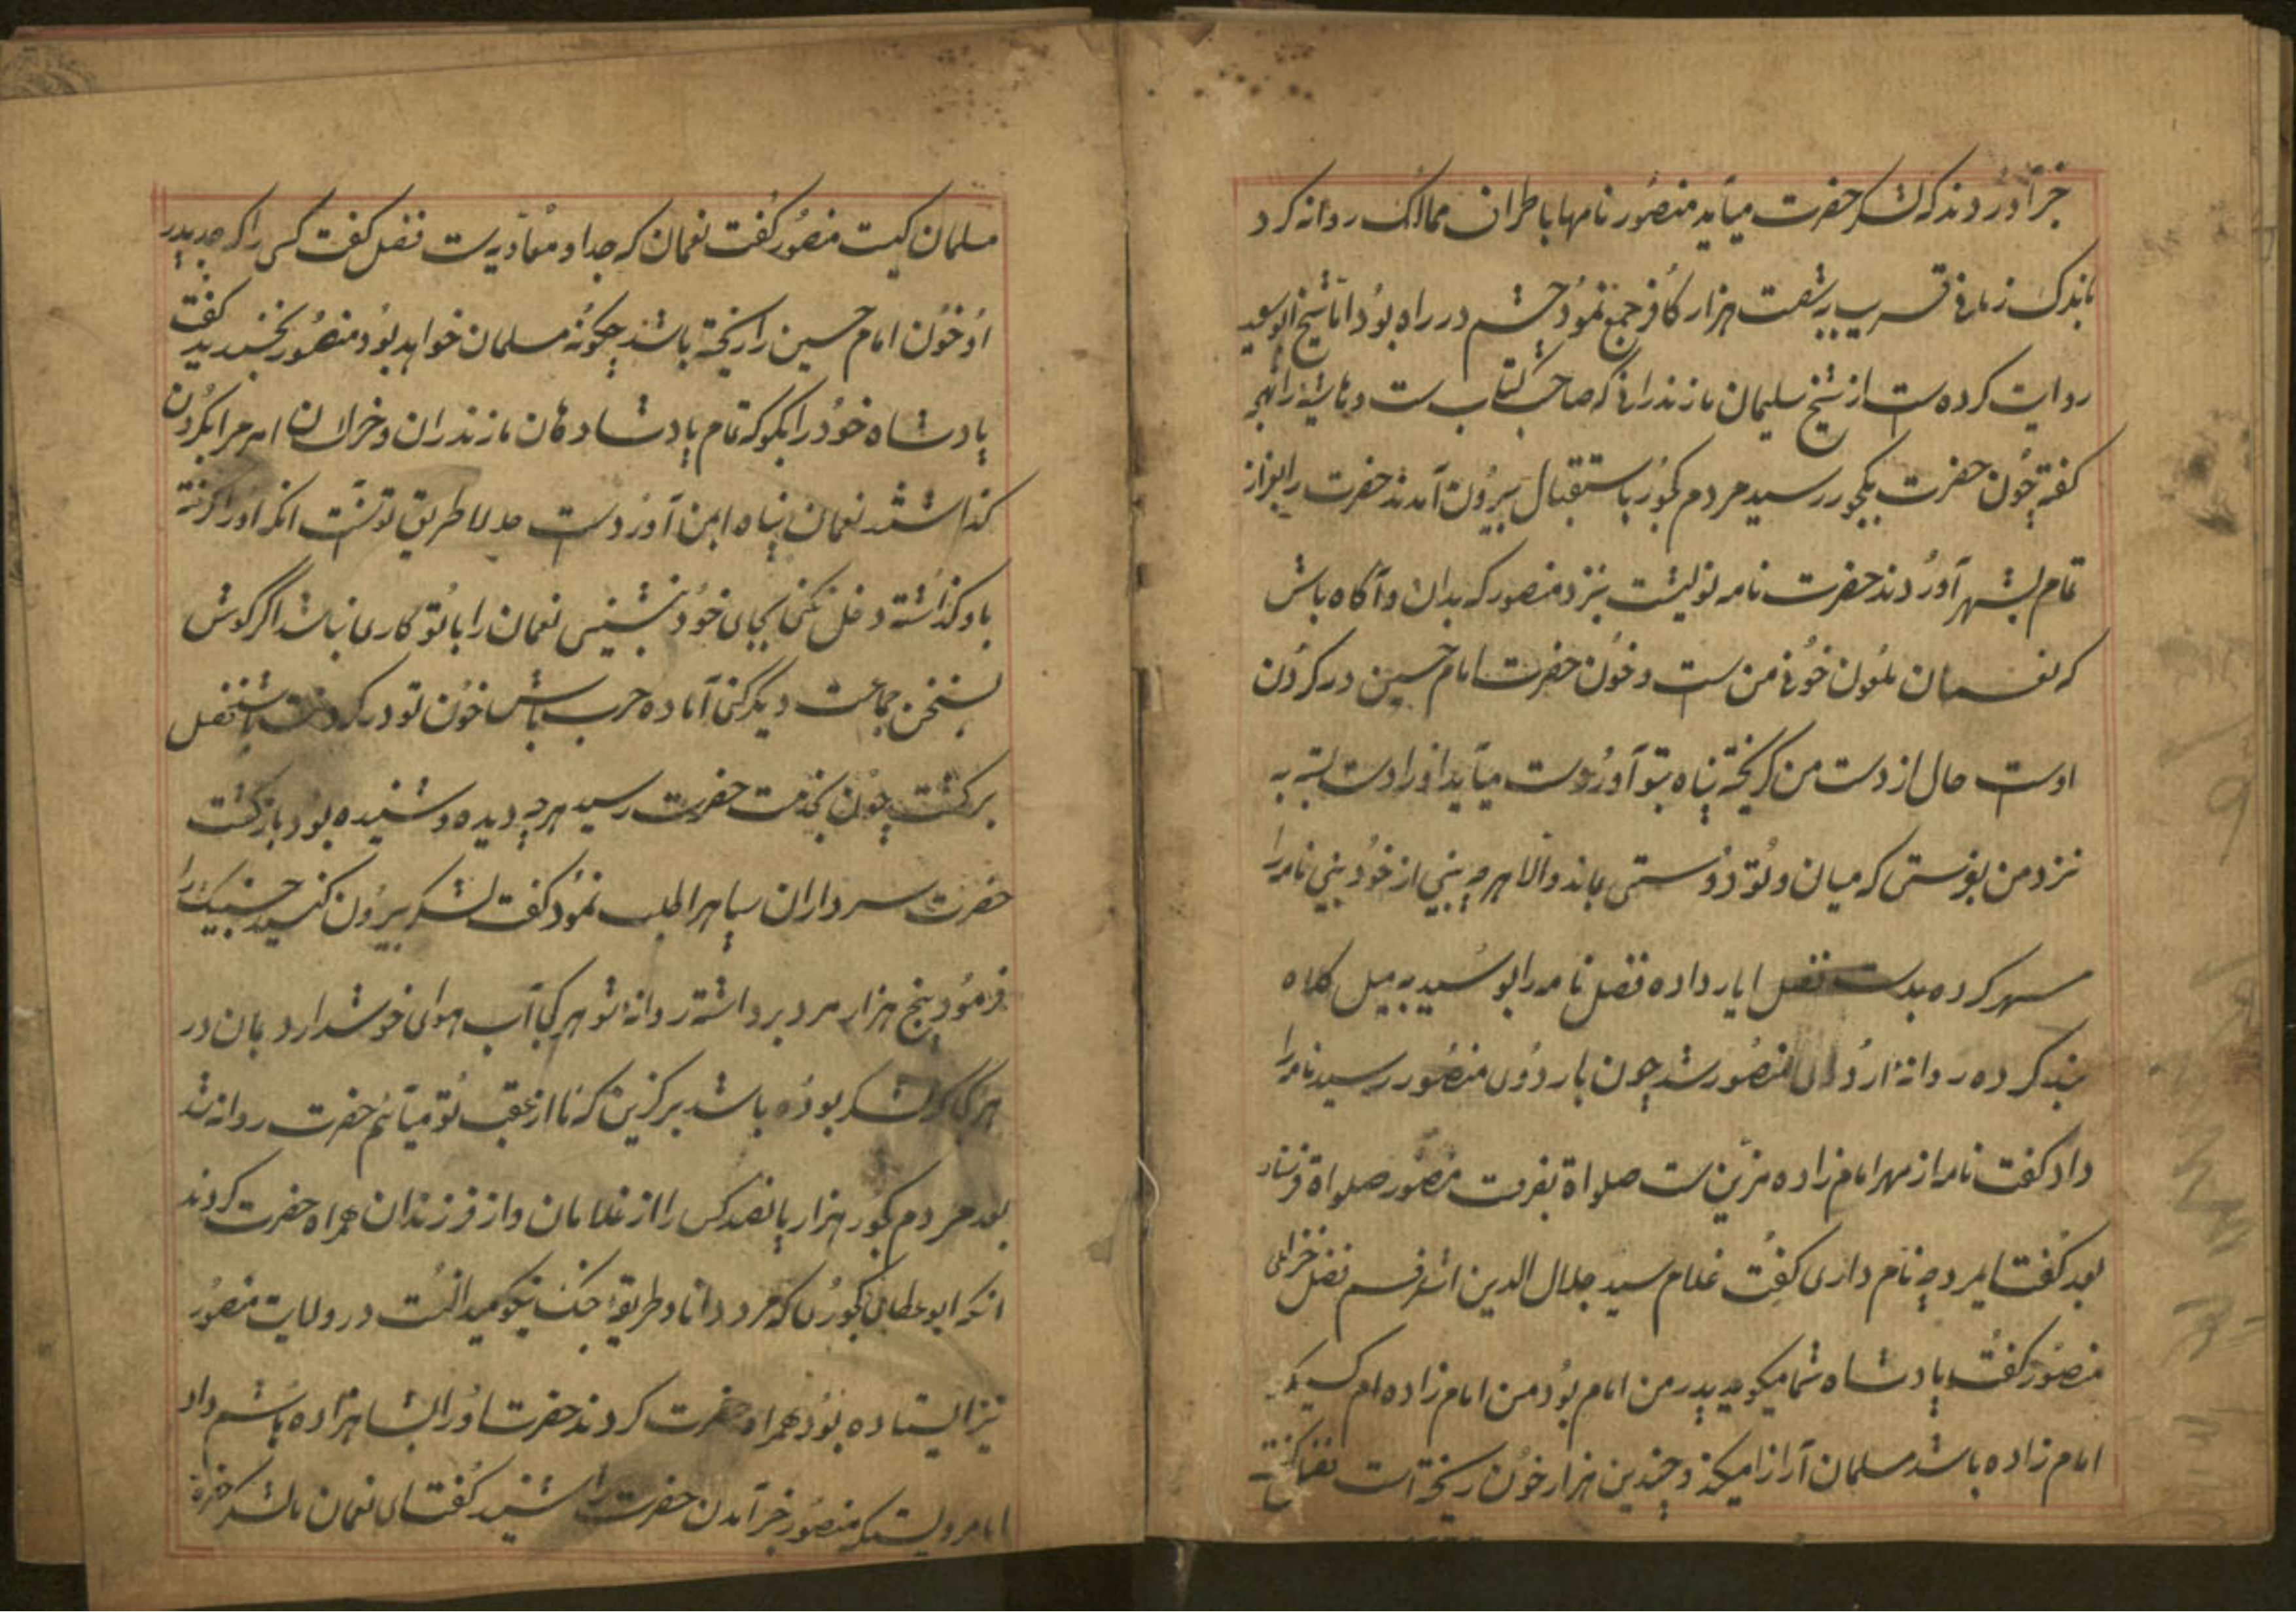 خبر آوردند که لشکر حضرت میآید منصور نامها باطران ممالک روانه کرد
باندک زمانی قریب بشصت هزار کافر جمع نمود چشم در راه بود اما شیخ ابوسعید
روایت کرده است از شیخ سلیمان مازندرانی که صاحب کتاب ست
گفته چون حضرت بکجور رسید مردم کجور باستقبال بیرون آمدند حضرت را
تمام بشهر آوردند حضرت نامه نوشت بنزد منصور که بدان و آگاه باش
که نعمان ملعون خونی من ست و خون حضرت امام حسین در گردن
اوست حال از دست من گریخته پناه بتو آورده است میآید او را دست بسته به
نزد من بفرستی که میان و تو دوستی بماند والا هرچه بینی از خود بینی نامه را
مهر کرده بدست فضل ایار داده فضل نامه را بوسید به میل کلاه
بند کرده روانه اردوی منصور شد چون باردوی منصور رسید نامه را
داد گفت نامه از مهر امام زاده مزین ست صلواة بفرست منصور صلواة فرستاد
بعد گفت ایمرد چه نام داری گفت غلام سید جلال الدین اشرفم فضل
منصور گفت پادشاه شما میگوید پدر من امام بود من امام زاده ام کسیکه
امام زاده باشد مسلمان آزار میکند و چندین هزار خون ریخته است فضل گفت
مسلمان کیست منصور گفت نعمان که جد او معاویه ست فضل گفت کسی را که جد پدر
او خون امام حسین را ریخته باشد چگونه مسلمان خواهد بود منصور بخندید گفت
پادشاه خود را بگو که تمام پادشاهان مازندران و خراسان امر مرا بگردن
گذاشتند نعمان پناه بمن آورده است حالا طریق تو نیست آنکه او را گرفته
باو گذاشته دخل نکنی بجای خود بنشینی نعمان را با تو کاری نباشد اگر گوش
بسخن جماعت دیگر کنی آماده حرب باش خون تو در گردنت باشد فضل
برگشت چون بخدمت حضرت رسید هرچه دیده و شنیده بود باز گفت
حضرت سرداران سپاه را طلب نمود گفت لشکر بیرون کنید
فرمود پنج هزار مرد برداشته روانه شو هر کجا آب هوای خوشدارد بمان در
هر کجا که لشکر بوده باشد برگزین که ما از عقب تو میآئیم حضرت روانه شد
بعد مردم کجور هزار پانصد کس را از غلامان و از فرزندان همراه حضرت کردند
آنکه کجوری که مرد دانا و طریقه جنگ نیکو میدانست در ولایت منصور
نیز ایستاده بود همراه حضرت کردند حضرت او را بشاهزاده هاشم داد
اما مرویست که منصور خبر آمدن حضرت را شنید گفت ای نعمان لشکر